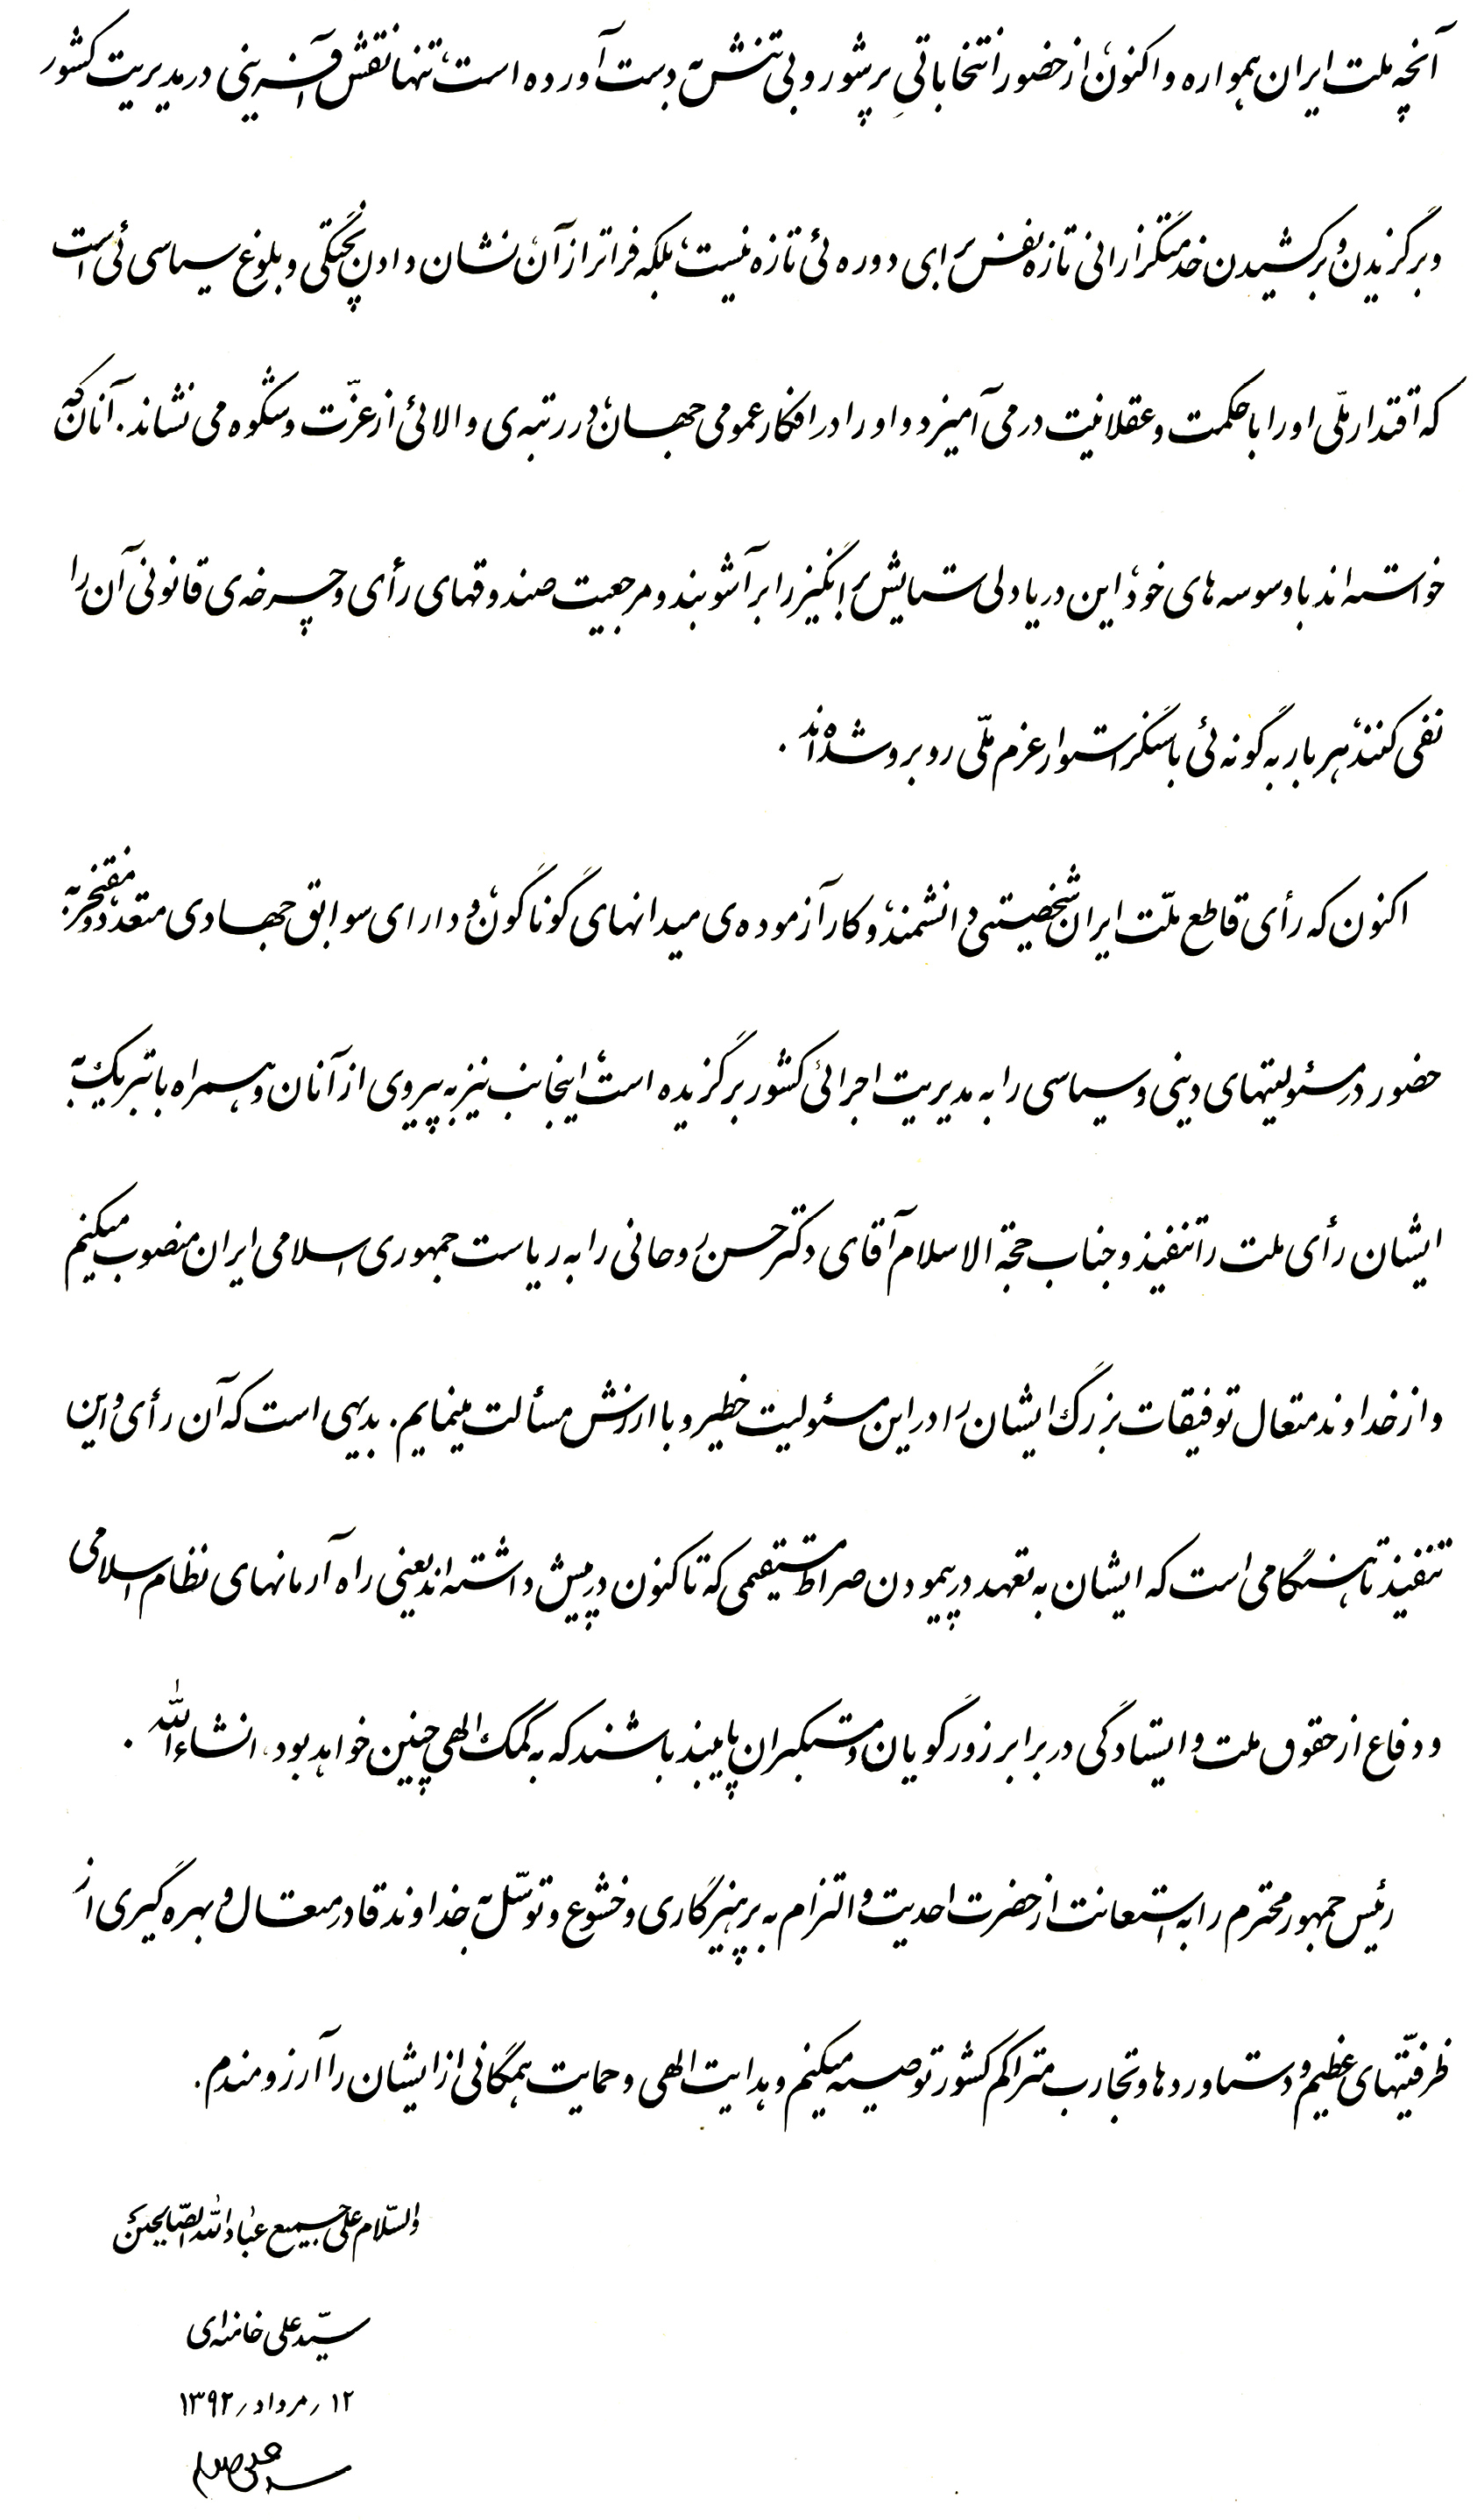 آنچه ملت ایران همواره و اکنون، از حضور انتخاباتیِ پرشور و بی تنش به دست آورده است، تنها نقش آفرینی در مدیریت کشور
و برگزیدن و برکشیدن خدمتگزارانی تازه نفس برای دوره ئی تازه نیست، بلکه فراتر از آن، نشان دادن پختگی و بلوغ سیاسی ئی است
که اقتدار ملّی او را با حکمت و عقلانیت در می آمیزد و او را در افکار عمومی جهان، در رتبه ی والائی از عزّت و شکوه می نشاند. آنان که
خواسته اند با وسوسه های خود، این دریادلی ستایش برانگیز را برآشوبند و مرجعیت صندوقهای رأی و چرخه ی قانونی آن را
نفی کنند، هر بار به گونه ئی با سنگر استوار عزم ملّی روبرو شده اند.
اکنون که رأی قاطع ملّت ایران شخصیتی دانشمند، و کارآزموده ی میدانهای گوناگون، و دارای سوابق جهادی متعدد، و مفتخر به
حضور در مسئولیتهای دینی و سیاسی را به مدیریت اجرائی کشور برگزیده است، اینجانب نیز به پیروی از آنان و همراه با تبریک به
ایشان رأی ملت را تنفیذ و جناب حجة الاسلام آقای دکتر حسن روحانی را به ریاست جمهوری اسلامی ایران منصوب میکنم
و از خداوند متعال توفیقات بزرگ ایشان را در این مسئولیت خطیر و با ارزش مسألت مینمایم. بدیهی است که آن رأی و این
تنفیذ تا هنگامی است که ایشان به تعهد در پیمودن صراط مستقیمی که تاکنون در پیش داشته اند یعنی راه آرمانهای نظام اسلامی
و دفاع از حقوق ملت و ایستادگی در برابر زورگویان و مستکبران پایبند باشند که به کمک الهی چنین خواهد بود، انشاءالله.
رئیس جمهور محترم را به استعانت از حضرت احدیت و التزام به پرهیزگاری و خشوع و توسّل به خداوند قادر متعال و بهره گیری از
ظرفیّتهای عظیم و دستاوردها و تجارب متراکم کشور توصیه میکنم و هدایت الهی و حمایت همگانی از ایشان را آرزومندم.
والسّلام علی جمیع عباد الله الصّالحین
سیّدعلی خامنه ای
۱۲/مرداد/۱۳۹۲